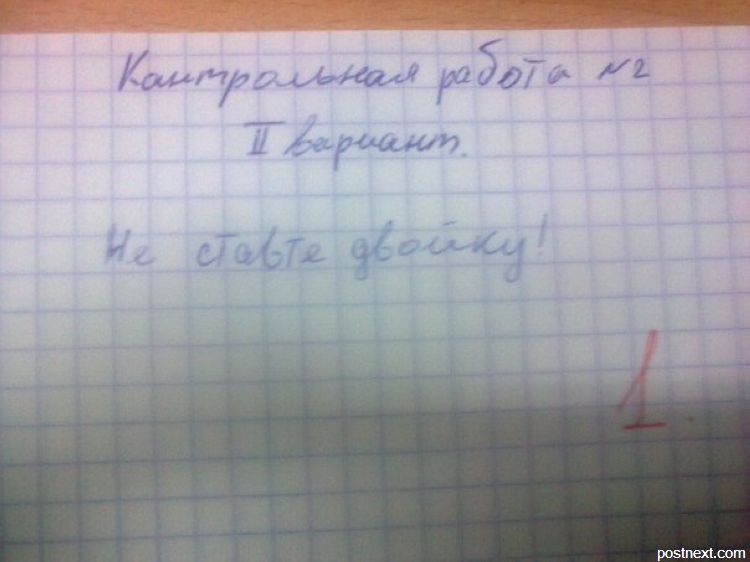 Кантрольная работа №2
II вариант.
Не ставте двойку!
1.
postnext.com